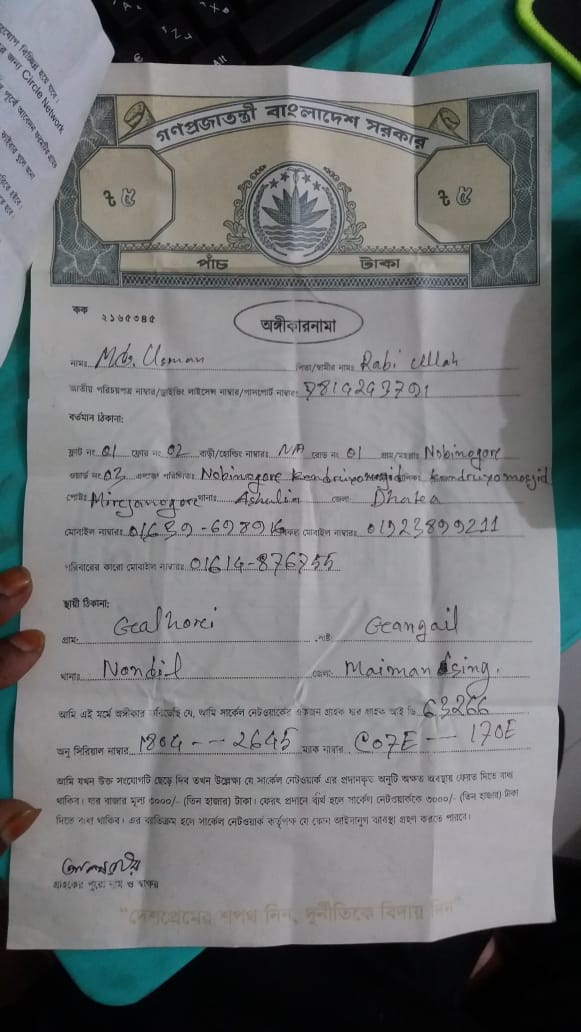 গণপ্রজাতন্ত্রী বাংলাদেশ সরকার
৳ ৫ ৳ ৫
পাঁচ টাকা
কক ২১৬৫৩৪৫
অঙ্গীকারনামা
নামঃ Md. Usman পিতা/স্বামীর নামঃ Rabi Ullah
জাতীয় পরিচয়পত্র নাম্বার/ড্রাইভিং লাইসেন্স নাম্বার/পাসপোর্ট নাম্বারঃ
বর্তমান ঠিকানা:
ফ্লাট নং 01 ফ্লোর নং 02 বাড়ী/হোল্ডিং নাম্বারঃ N/A রোড নং 01 গ্রাম/মহল্লাঃ Nobinogore
ওয়ার্ড নং 03 এলাকা Nobinogore
পোষ্টঃ থানাঃ Ashulia জেলা: Dhaka
মোবাইল নাম্বারঃ মোবাইল নাম্বারঃ 01923899211
পরিবারের কারো মোবাইল নাম্বারঃ 01614-876755
স্থায়ী ঠিকানা:
গ্রাম: Gealhorci Geangail
থানাঃ Nondil জেলা: Maimansing.
আমি এই মর্মে অঙ্গীকার করিতেছি যে, আমি সার্কেল নেটওয়ার্কের একজন গ্রাহক যার গ্রাহক আই ডি 63266
অনু সিরিয়াল নাম্বার 1804 -- 2645 ম্যাক নাম্বার C07E -- 170E
আমি যখন উক্ত সংযোগটি ছেড়ে দিব তখন উল্লেক্ষ্য যে সার্কেল নেটওয়ার্ক এর প্রদানকৃত অনুটি অক্ষত অবস্থায় ফেরত দিতে বাধ্য
থাকিব। যার বাজার মূল্য ৩০০০/- (তিন হাজার) টাকা। ফেরৎ প্রদানে ব্যর্থ হলে সার্কেল নেটওয়ার্ককে ৩০০০/- (তিন হাজার) টাকা
দিতে বাধ্য থাকিব। এর ব্যতিক্রম হলে সার্কেল নেটওয়ার্ক কর্তৃপক্ষ যে কোন আইনানুগ ব্যবস্থা গ্রহণ করতে পারবে।
গ্রাহকের পুরো নাম ও স্বাক্ষর
“দেশপ্রেমের শপথ নিন, দুর্নীতিকে বিদায় দিন”
Circle Network
Alt